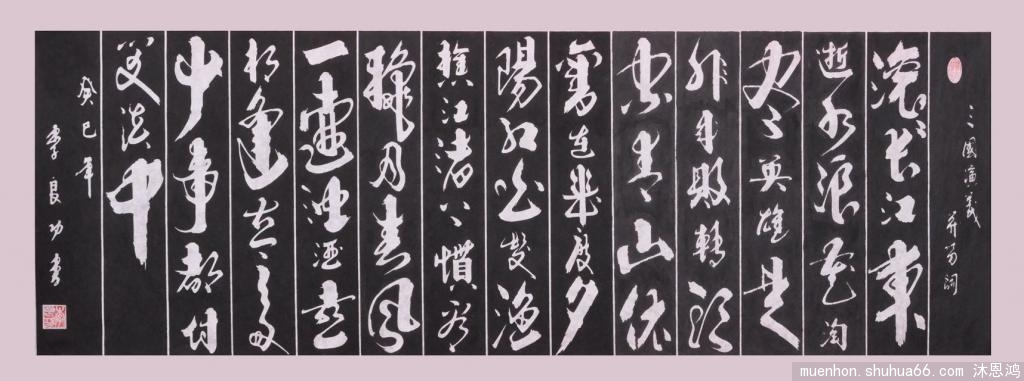 三國演義 开篇詞
滚滚长江東
逝水浪花淘
尽英雄是
非成敗轉头
空青山依
舊在幾度夕
陽红白髮漁
樵江渚上慣看
秋月春風
一壺濁酒喜
相逢古今多
少事都付
笑談中
癸巳年
李良功書
muenhon.shuhua66.com 沐恩鸿